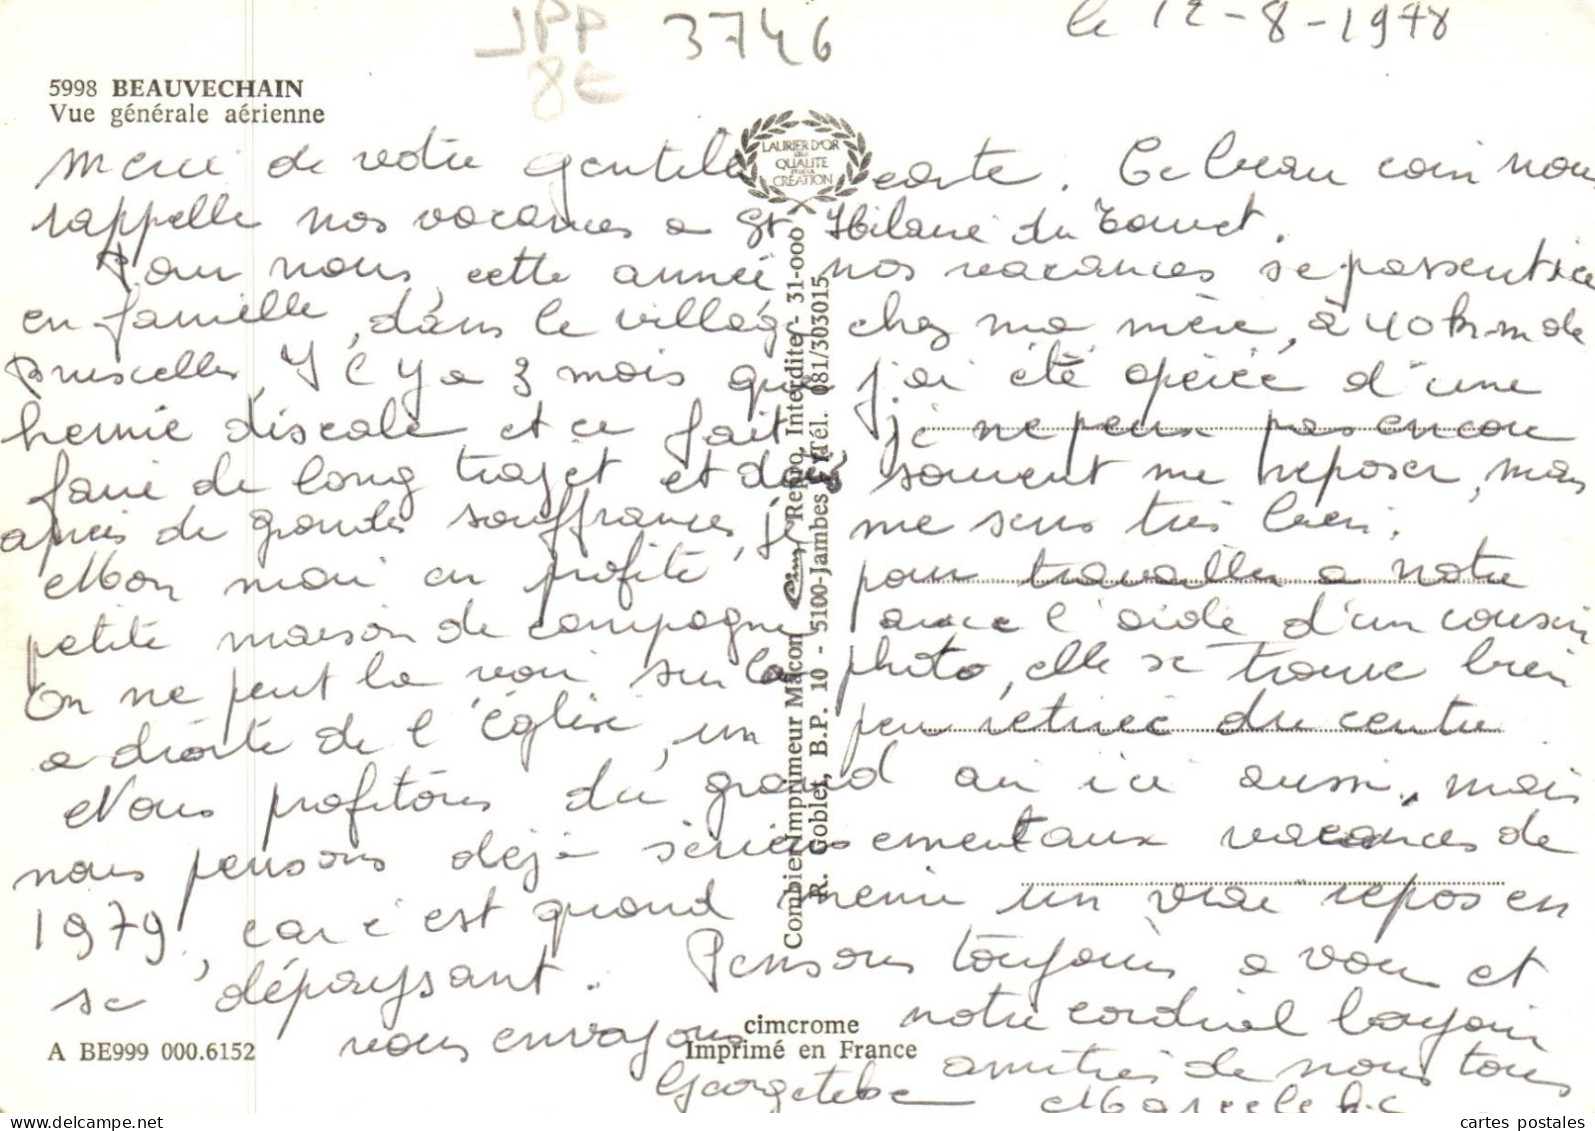 JPP 3746 le 12-8-1978
8€
5998 BEAUVECHAIN
Vue générale aérienne
LAURIER D'OR
DE LA
QUALITE
ET DE LA
CREATION
Merci de votre gentille carte. Ce beau coin nous
rappelle nos vacances a St Hilaire du Touvet.
Pour nous, cette année nos vacances se passent ici
en famille, dans le village chez ma mère, à 40 km de
Bruxelles, Il y a 3 mois que j'ai été opérée d'une
hernie discale et ce fait je ne peux pas encore
faire de long trajet et dois souvent me reposer, mais
après de grandes souffrances, je me sens très bien.
Mon mari en profite pour travailler a notre
petite maison de campagne avec l'aide d'un cousin
On ne peut la voir sur la photo, elle se trouve bien
a droite de l'église, un peu retirée du centre
Nous profitons du grand air ici aussi, mais
nous pensons déjà sérieusement aux vacances de
1979, car c'est quand même un vrai repos en
se dépaysant. Pensons toujours a vous et
vous envoyons notre cordial bonjour
amitiés de nous tous
Georgette
Combier Imprimeur Macon Cim Repro. Interdite - 31-000
R. Goblet, B.P. 10 - 5100-Jambes Tél. 081/303015
cimcrome
Imprimé en France
A BE999 000.6152
cartes postales